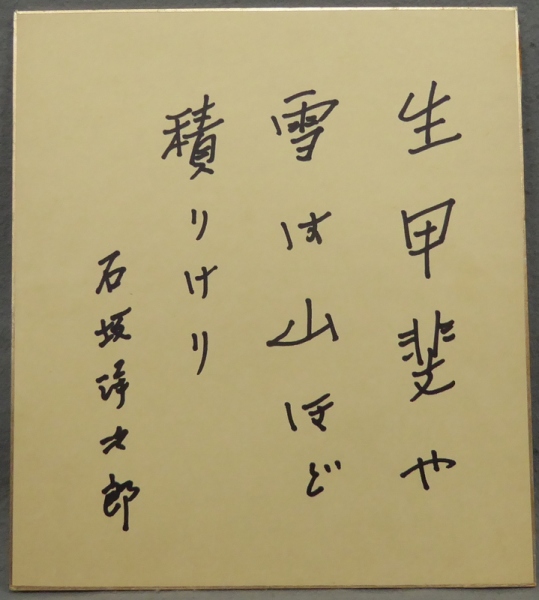 生甲斐や
雪は山ほど
積りけり
石塚浄太郎